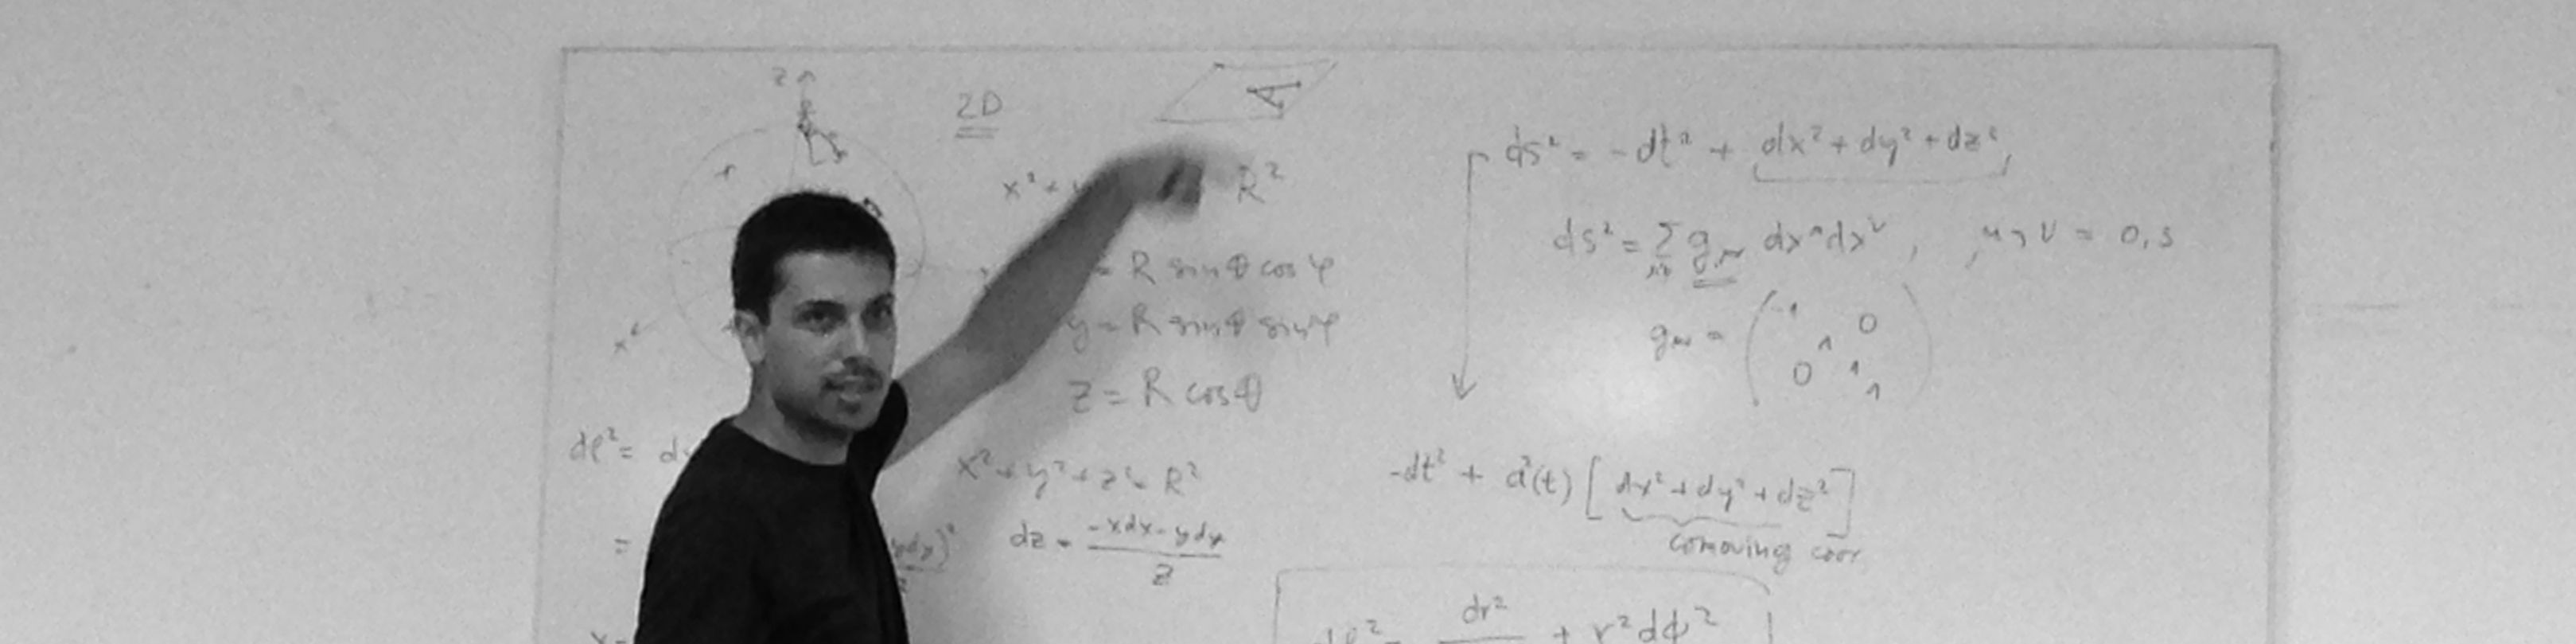 z
2D
A
r
x² +
R²
= R sinθ cosφ
y = R sinθ sinφ
z = R cosθ
x
dl² =
x² + y² + z² = R²
=
ydy)²
dz = -xdx - ydy / z
ds² = -dt² + dx² + dy² + dz²
ds² = Σ gμν dx^μ dx^ν , μ, ν = 0,3
gμν = ( -1 0
1
0 1
1 )
-dt² + a²(t) [dx² + dy² + dz²]
comoving coor
dr²
+ r²dφ²